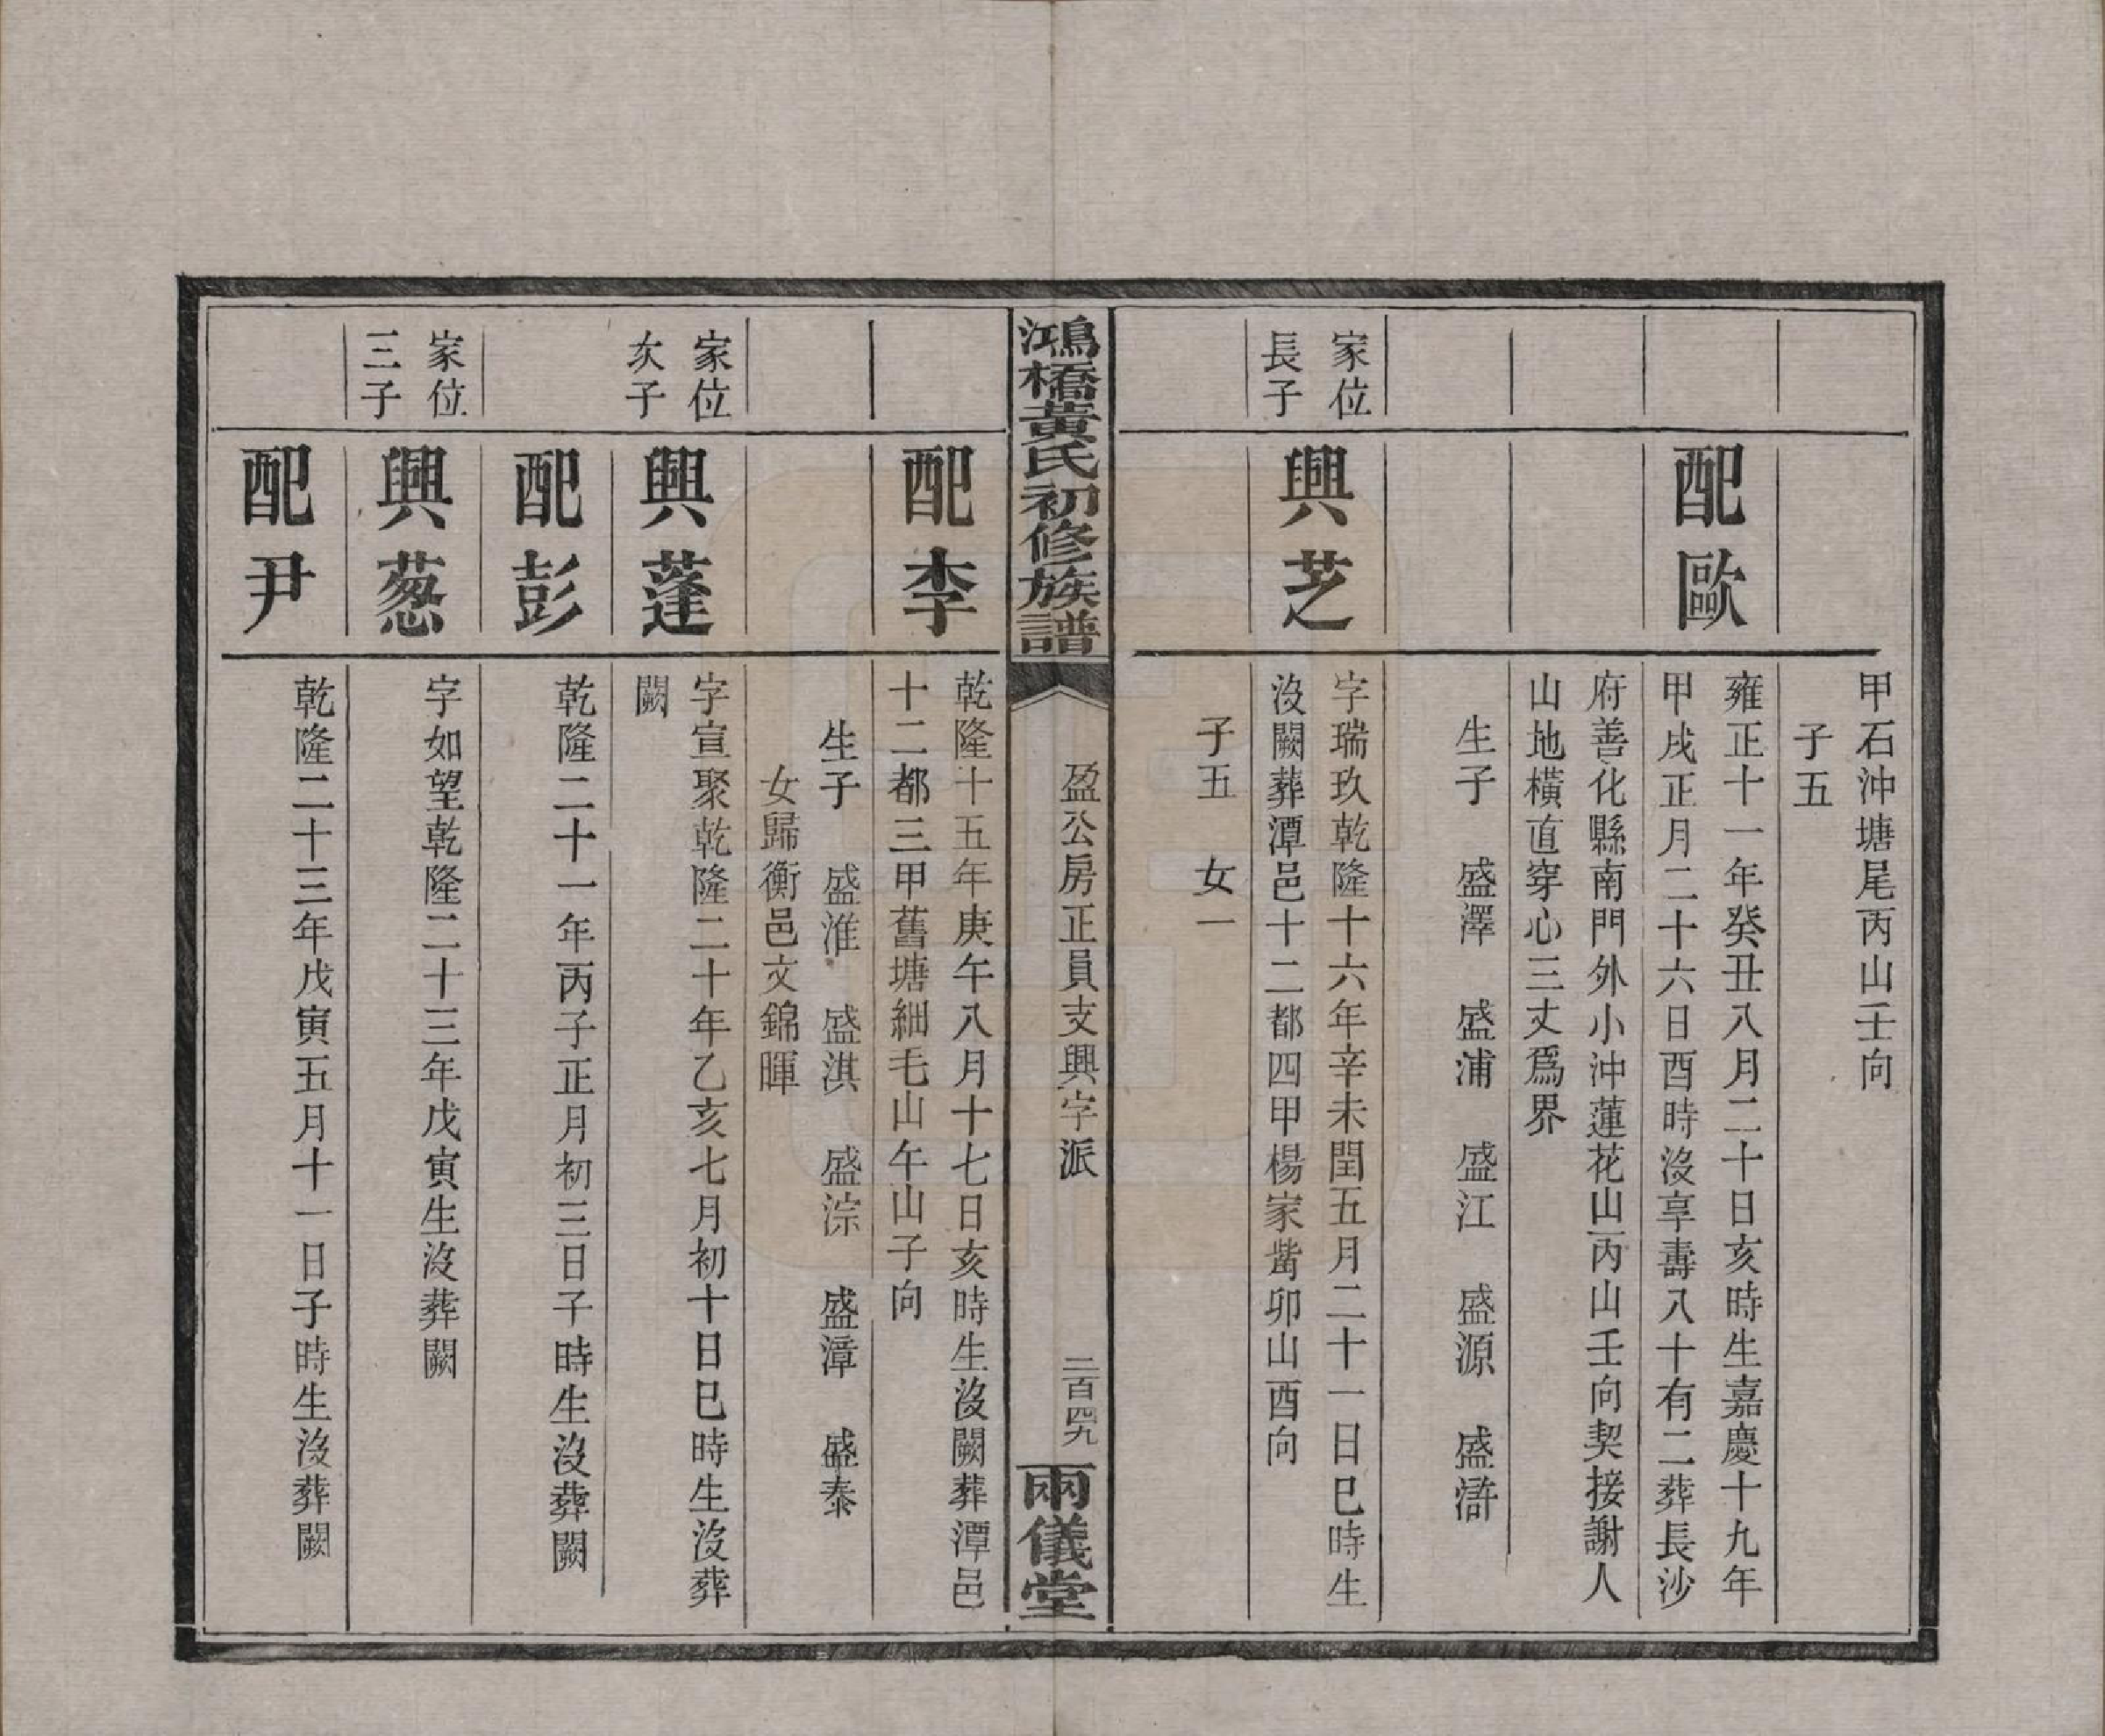 甲石沖塘尾丙山壬向
子五
配歐
雍正十一年癸丑八月二十日亥時生嘉慶十九年
甲戌正月二十六日酉時沒享壽八十有二葬長沙
府善化縣南門外小沖蓮花山丙山壬向契接謝人
山地橫直穿心三丈爲界
生子 盛澤 盛浦 盛江 盛源 盛滸
家位
長子
興芝
字瑞玖乾隆十六年辛未閏五月二十一日巳時生
沒闕葬潭邑十二都四甲楊家嵛卯山酉向
子五 女一
鴻橋黃氏初修族譜
盈公房正員支興字派
二百四九
兩儀堂
配李
乾隆十五年庚午八月十七日亥時生沒闕葬潭邑
十二都三甲舊塘細毛山午山子向
生子 盛淮 盛淇 盛淙 盛漳 盛泰
女歸衡邑文錦暉
家位
次子
興蓬
字宣聚乾隆二十年乙亥七月初十日巳時生沒葬
闕
配彭
乾隆二十一年丙子正月初三日子時生沒葬闕
家位
三子
興葱
字如望乾隆二十三年戊寅生沒葬闕
配尹
乾隆二十三年戊寅五月十一日子時生沒葬闕